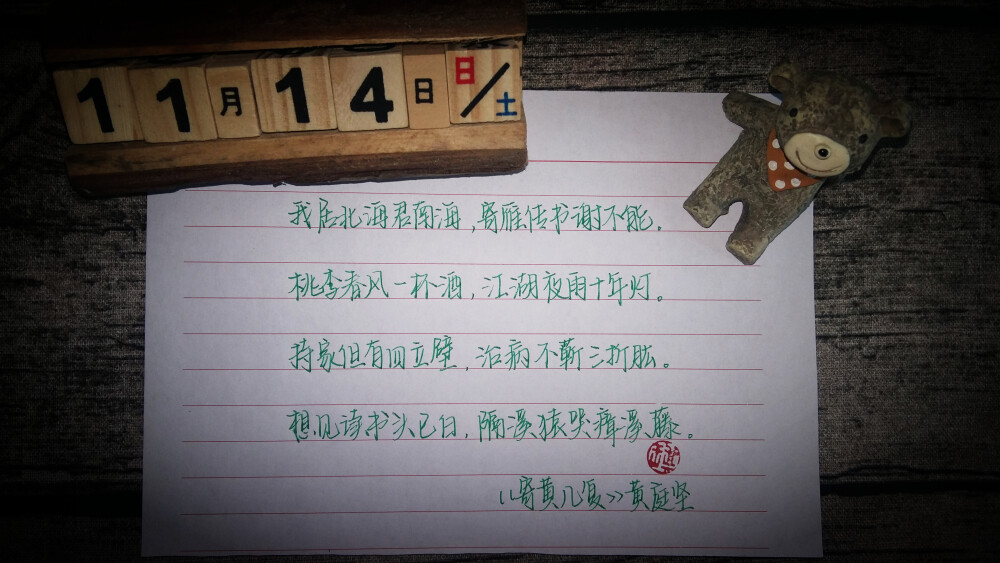 11月14日 日/土
我居北海君南海,寄雁传书谢不能。
桃李春风一杯酒,江湖夜雨十年灯。
持家但有四立壁,治病不蕲三折肱。
想见读书头已白,隔溪猿哭瘴溪藤。
《寄黄几复》黄庭坚